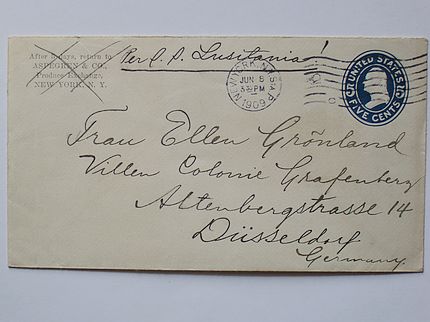 After 5 days, return to
ASPEGREN & CO.,
Produce Exchange,
NEW YORK, N. Y.
Per S. S. Lusitania!
NEW YORK, N.Y. STA. P
JUN 8
3 30 PM
1909
UNITED STATES
FIVE CENTS
Frau Ellen Grönland
Villen Colonie Grafenberg
Altenbergstrasse 14
Düsseldorf
Germany.